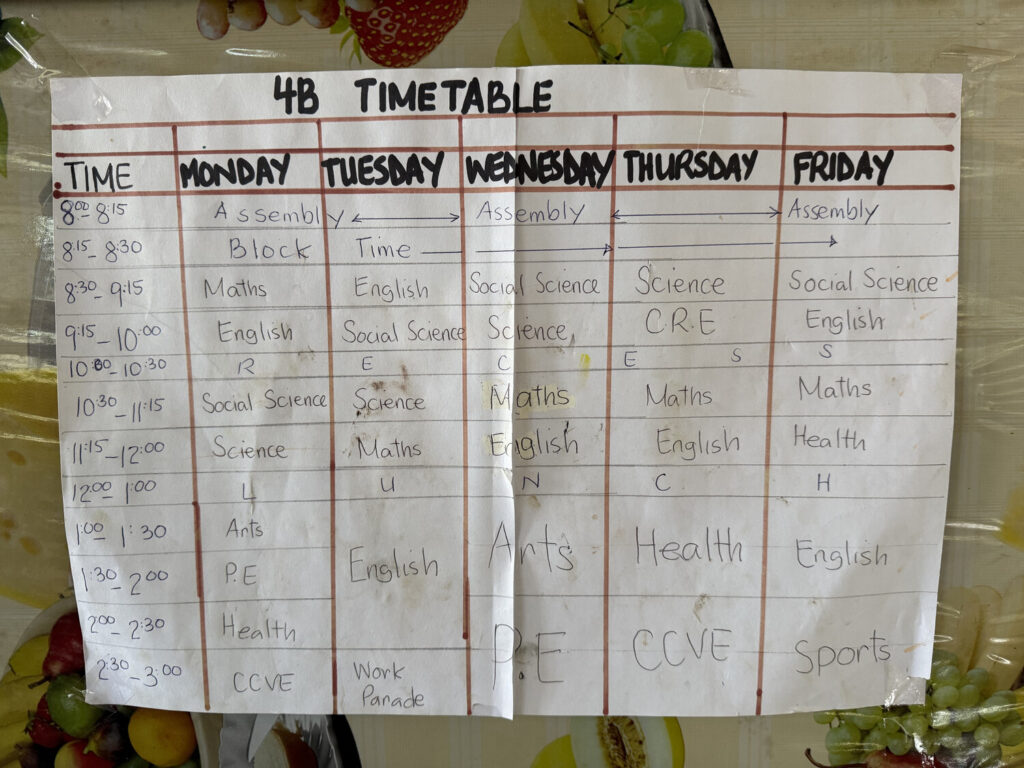 4B TIMETABLE
TIME MONDAY TUESDAY WEDNESDAY THURSDAY FRIDAY
8:00- 8:15 Assembly Assembly Assembly
8:15- 8:30 Block Time
8:30- 9:15 Maths English Social Science Science Social Science
9:15- 10:00 English Social Science Science C.R.E English
10:00-10:30 R E C E S S
10:30-11:15 Social Science Science Maths Maths Maths
11:15-12:00 Science Maths English English Health
12:00- 1:00 L U N C H
1:00- 1:30 Arts
English Arts Health English
1:30- 2:00 P.E
2:00- 2:30 Health
P.E CCVE Sports
2:30-3:00 CCVE Work Parade